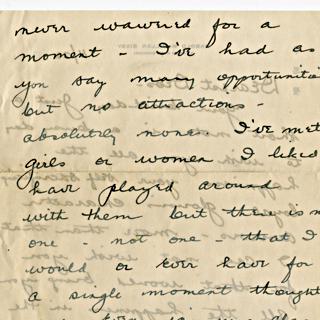 never wavered for a
moment - I've had as
you say many opportunities
but no attractions -
absolutely none. I've met
girls or women I liked
have played around
with them but there is n
one - not one - that I
would or ever have for
a single moment thought